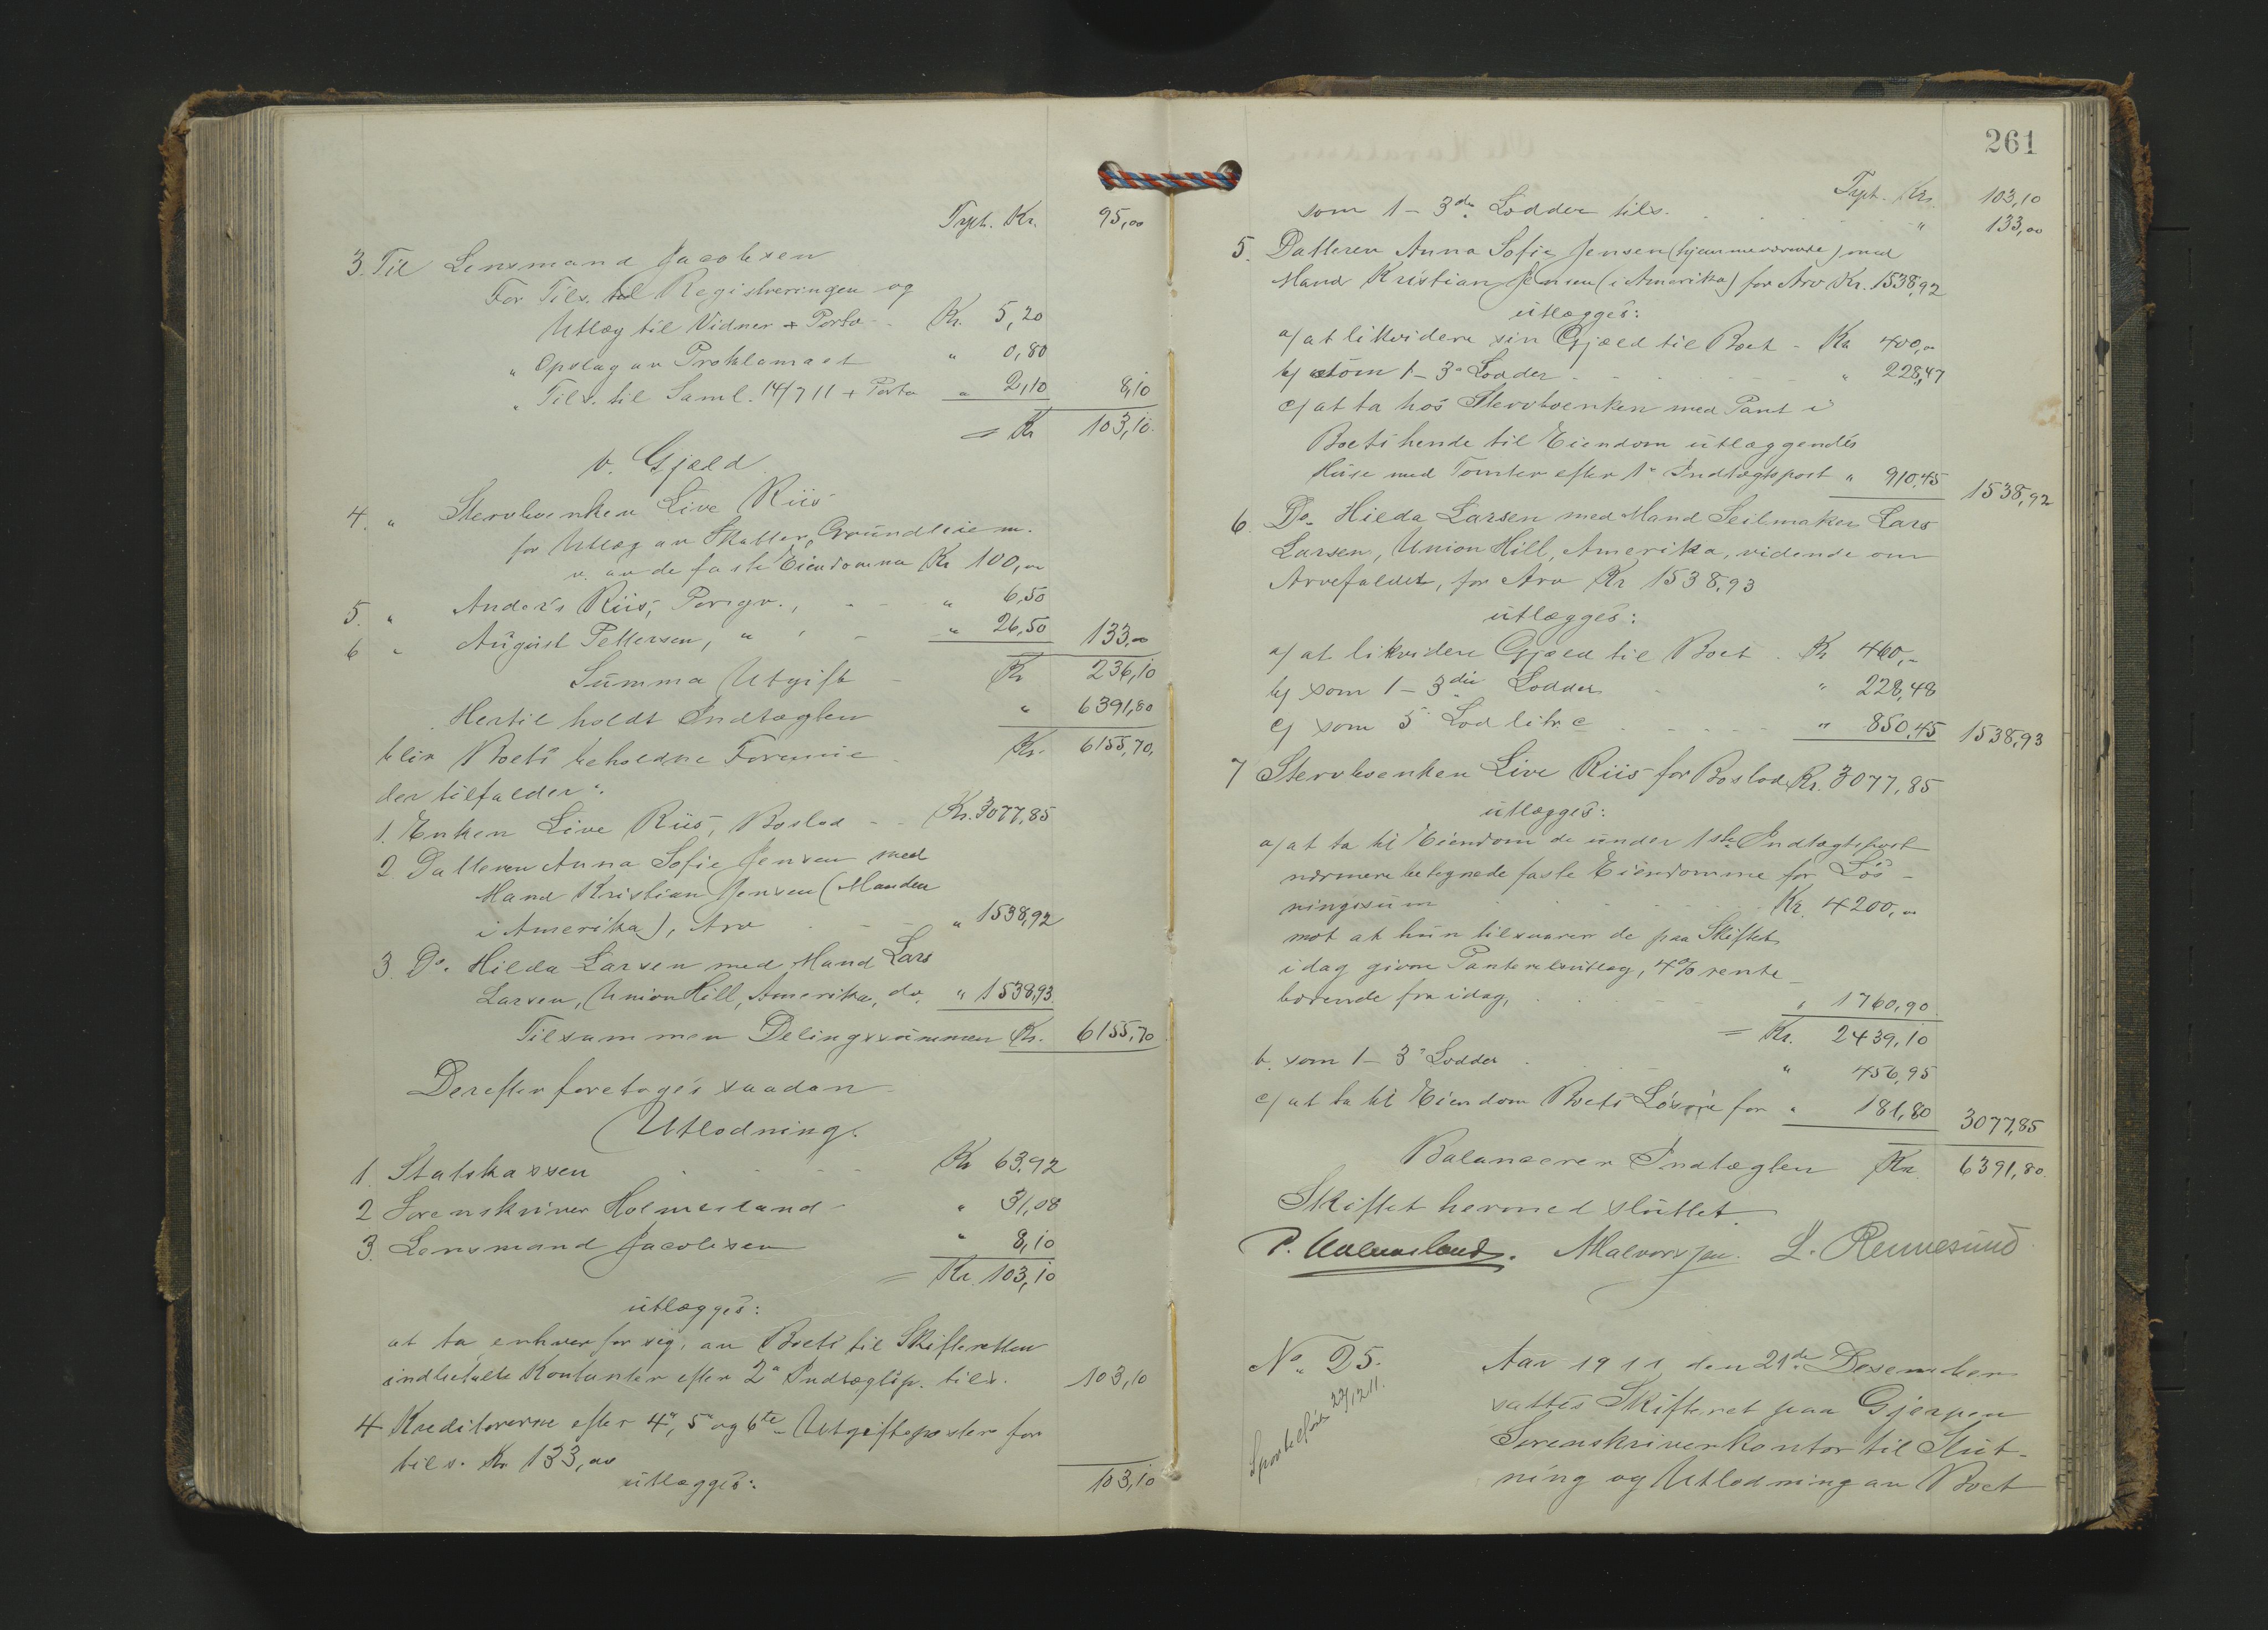 Trpt. Kr. 95,00
3. Til Lensmand Jacobsen
For Tils. til Registreringen og
Utlæg til Vidner + Porto - Kr. 5,20
" Opslag av Proklamaet " 0,80
" Tils. til Saml. 14/7 11 + Porto " 2,10 8,10
= Kr 103,10.
b. Gjæld
4. " Stervboenken Live Riis
for Utlæg av Skatter, Grundleie m.
v. av de faste Eiendomme Kr 100,00
5. " Anders Riis, Porsgr., - - " 6,50
6 " August Pettersen, " , - - " 26,50 133,00
Summa Utgift - Kr 236,10
Hertil holdt Indtægten " 6391,80
blir Boets beholdne Formue - Kr. 6155,70,
der tilfalder:
1. Enken Live Riis, Boslod - - Kr. 3077,85
2. Datteren Anna Sofie Jensen med
Mand Kristian Jensen (Manden
i Amerika), Arv - - " 1538,92
3. Do. Hilda Larsen med Mand Lars
Larsen, Union Hill, Amerika, do. " 1538,93.
Tilsammen Delingssummen Kr. 6155,70
Derefter foretoges saadan
Utlodning.
1. Statskassen - - - Kr 63,92
2 Sorenskriver Holmesland - " 31,08
3. Lensmand Jacobsen " 8,10
= Kr. 103,10
utlægges:
at ta enhver for sig, av Boets til Skifteretten
indbetalte Kontanter efter 2" Indtægtsp. tils. 103,10
4 Kreditorerne efter 4", 5" og 6te Utgiftsposter for
tils. Kr 133,00
utlægges: 103,10
261
Trpt. Kr. 103,10
som 1 - 3die Lodder tils. " 133,00
5. Datteren Anna Sofie Jensen (hjemmeværende) med
Mand Kristian Jensen (i Amerika) for Arv Kr. 1538,92
utlægges:
a/ at likvidere sin Gjæld til Boet - Kr 400,00
b/ som 1 - 3" Lodder - - - " 228,47
c/ at ta hos Stervboenken med Pant i
Boets hende til Eiendom utlæggendes
Huse med Tomter efter 1" Indtægtspost " 910,45 1538,92
6. Do. Hilda Larsen med Mand Seilmaker Lars
Larsen, Union Hill, Amerika, vidende om
Arvefaldet, for Arv Kr 1538,93
utlægges:
a/ at likvidere Gjæld til Boet . Kr 460,-
b/ som 1 - 3die Lodder - " 228,48
c/ som 5" Lod litr c - - - " 850,45 1538,93
7 Stervboenken Live Riis for Boslod Kr. 3077,85
utlægges:
a/ at ta til Eiendom de under 1ste Indtægtspost
nærmere betegnede faste Eiendomme for Løs-
ningssum - - - Kr. 4200,00
mot at hun tilsvarer de paa Skiftet
idag givne Panterelsutlæg, 4% rente-
bærende fra idag, - - " 1760,90
= Kr. 2439,10
b. som 1 - 3" Lodder - - " 456,95
c/ at ta til Eiendom Boets Løsøre for " 181,80 3077,85
Balancerer Indtægten Kr 6391,80.
Skiftet hermed sluttet.
P. Holmesland. MHalvorsen. L. Rennesund
No. 25. Aar 1911 den 21de Desember
sattes Skifteret paa Gjerpen
Sorenskriverkontor til Slut-
ning og Utlodning av Boet
Sportelført 22/12 11.